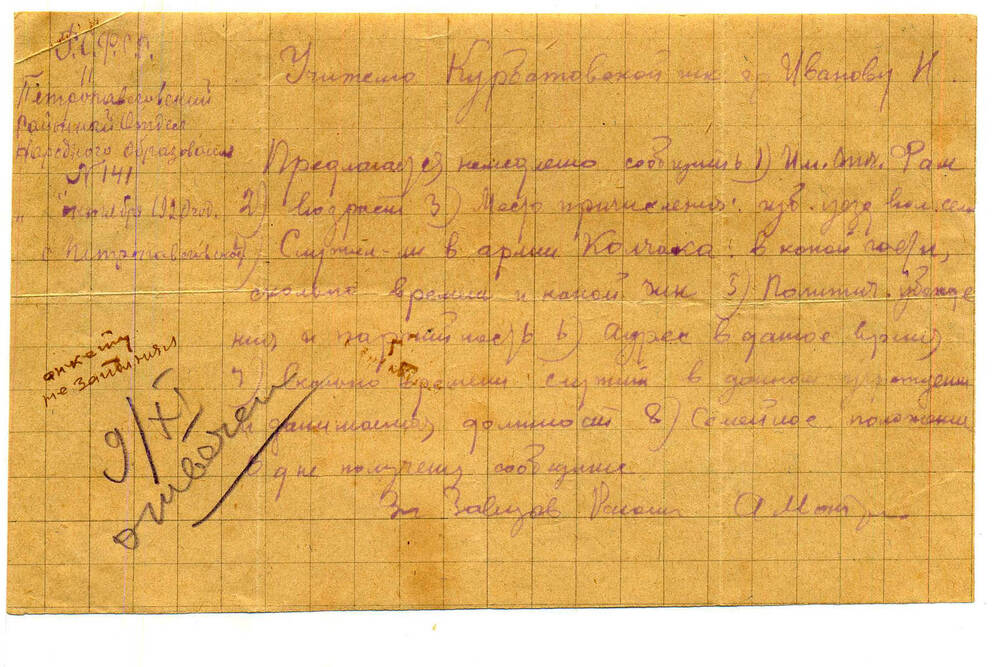 Р.С.Ф.С.Р.
Петропавловский
Районный Отдел
Народного Образования
N 141
" " октября 1920 год.
с Петропавловское
Учителю Курбатовской шк гр Иванову И.
Предлагается немедленно сообщить 1) Им. Отч. Фам
2) возраст 3) Место причисления: губ. уезд вол. село
4) Служил-ли в армии Колчака: в какой части,
сколько времени и какой чин 5) Политич. убежде
ния и партийность 6) Адрес в данное время
7) Сколько времени служит в данном учреждении
и занимаемая должность 8) Семейное положение
О дне получения сообщите.
За Завед
анкету
не заполнял
9/XI
отвечен